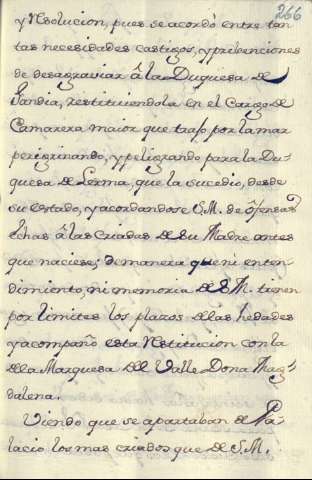 266
y Resolucion, pues se acordó entre tan
tas necesidades castigos, y pribenciones
de desagraviar â la Duquesa de
Gandia, restituiendola en el Cargo de
Camarera maior que trajo por la mar
peregrinando, y peligrando para la Du-
quesa de Lerma, que la sucedio, desde
su estado, y acordandose S.M. de ôfensas
echas â las criadas de Su Madre antes
que naciese, de manera que ni enten
dimiento, ni memoria de S.M. tienen
por limites los plazos de las hedades
y acompañó esta Restitucion con la
de la Marquesa del Valle Dona Mag-
dalena.
Viendo que se apartaban de Pa-
lacio los mas criados que de S.M.